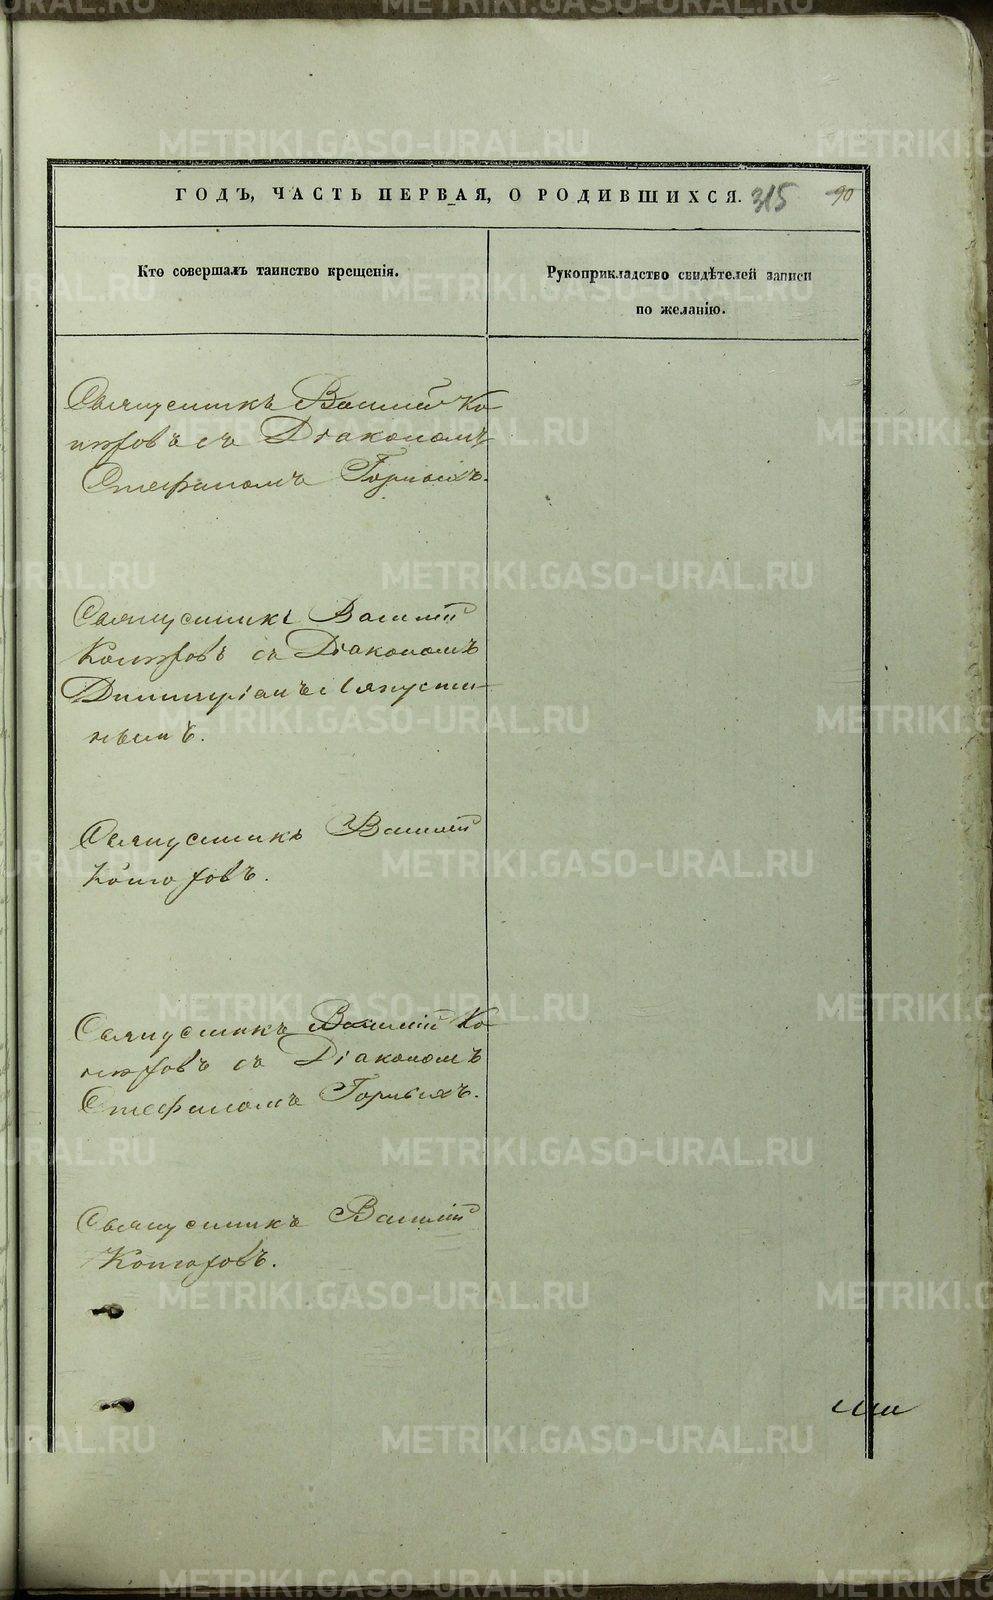 ГОДЪ, ЧАСТЬ ПЕРВАЯ, О РОДИВШИХСЯ. 315 90
Кто совершалъ таинство крещенія.
Рукоприкладство свидѣтелей записи
по желанію.
Священникъ Василій
съ Діакономъ
Стефаномъ Горныхъ.
Священникъ Василій
съ Діакономъ
Димитріемъ
Священникъ Василій
Священникъ Василій
съ Діакономъ
Стефаномъ Горныхъ.
Священникъ Василій
METRIKI.GASO-URAL.RU